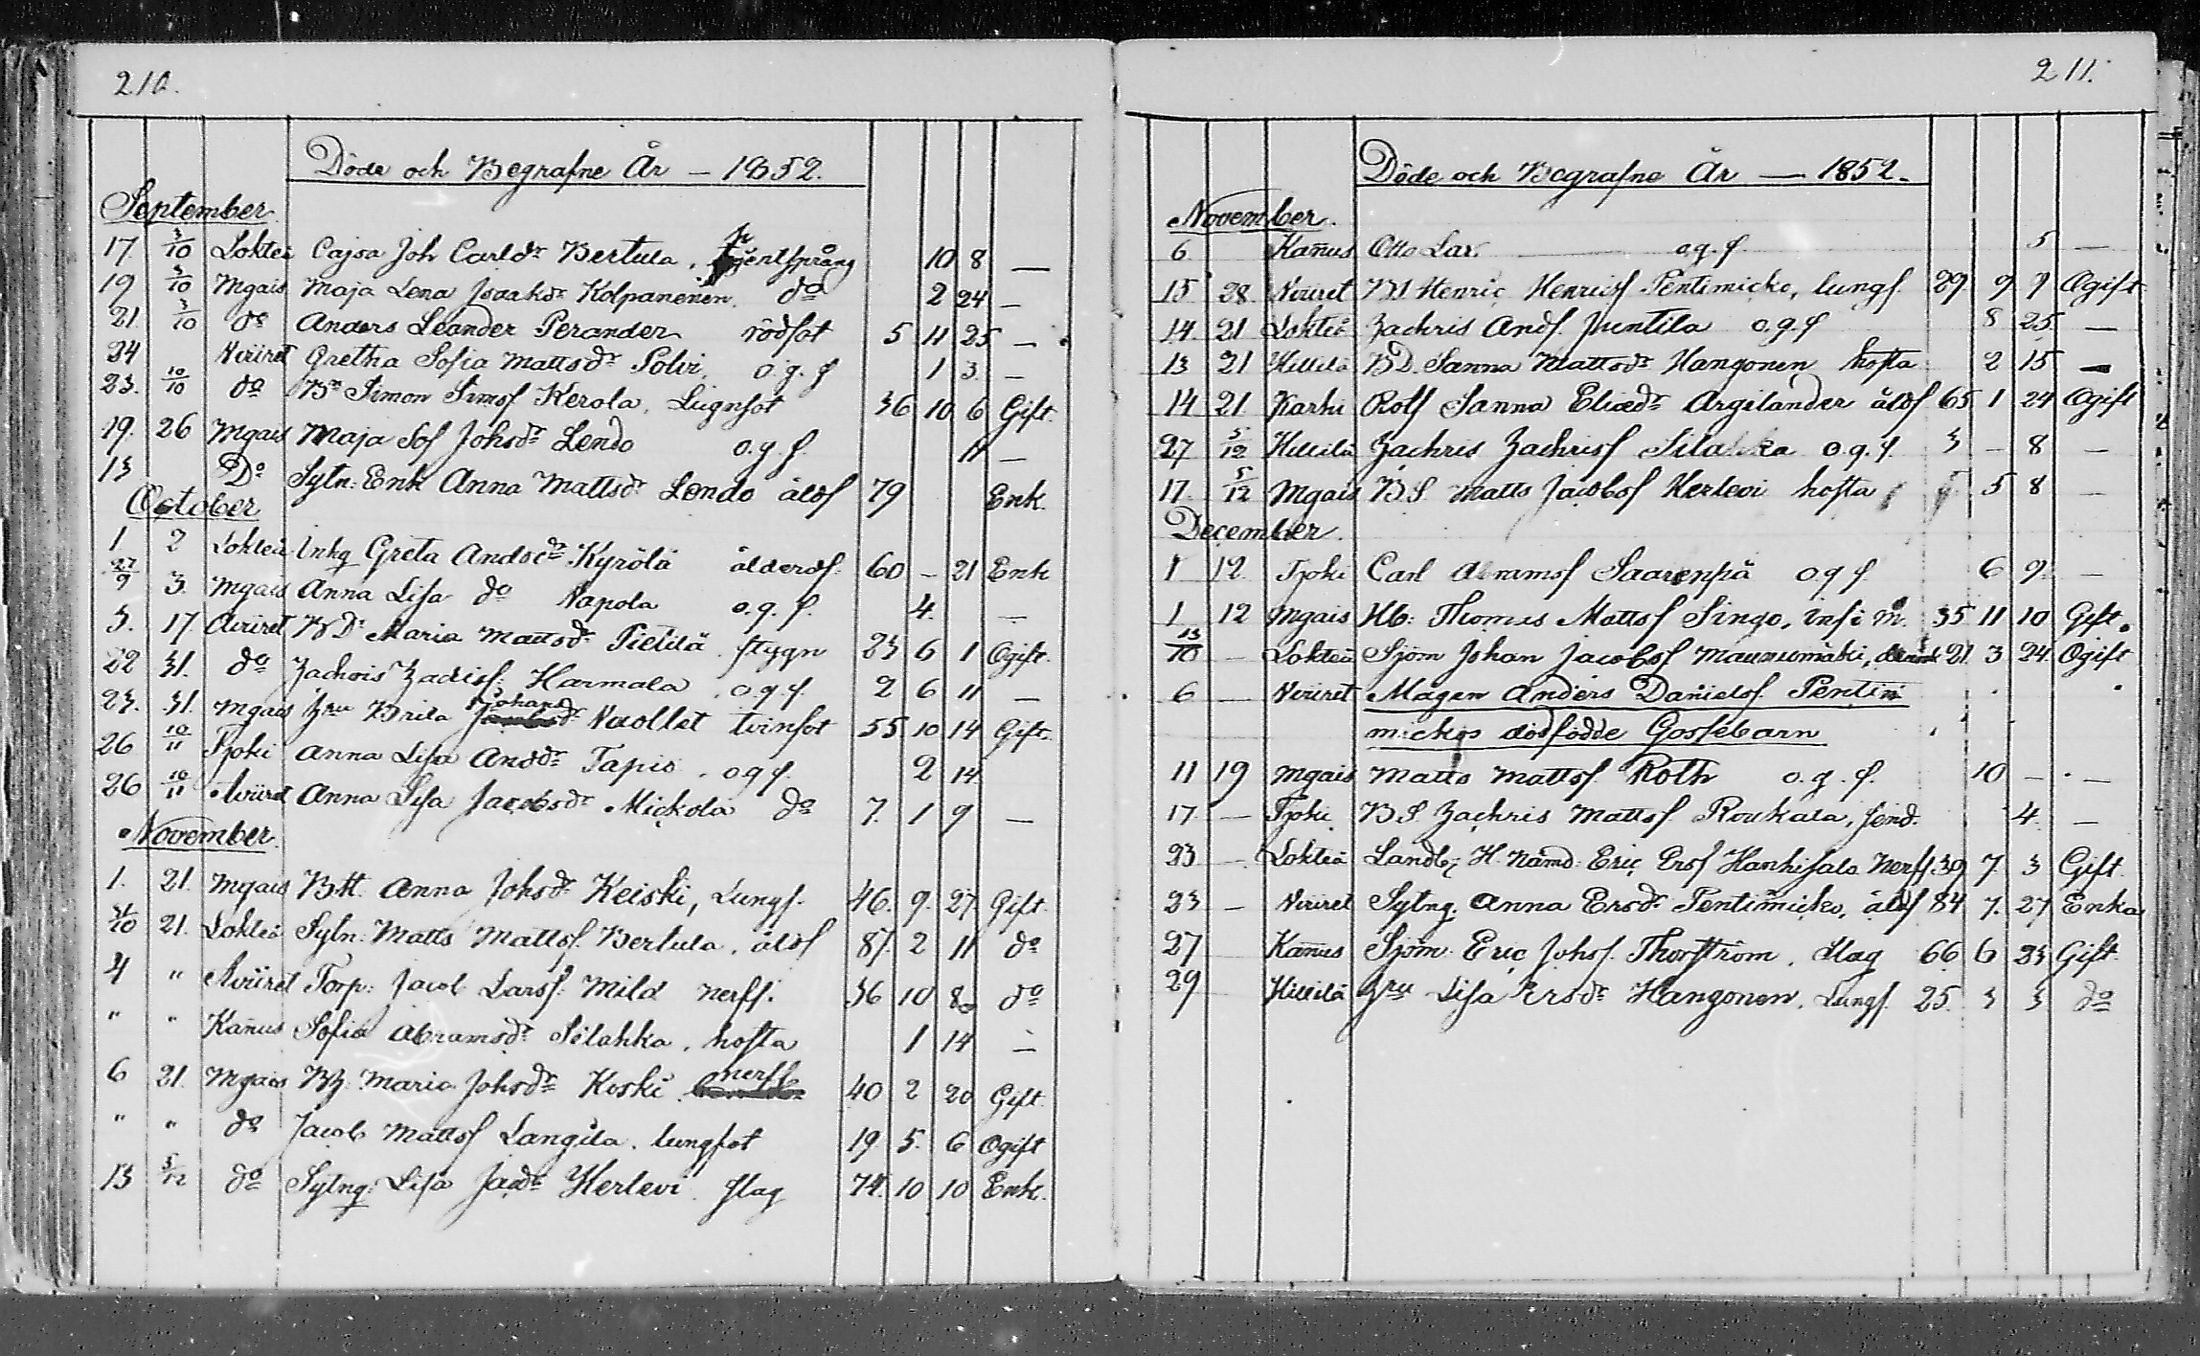 210.
Döde och Begrafne År — 1852.
September
17 3/10 Lokteå Cajsa Joh Carlsdr Bertula, hjertsprång 10 8 —
19 3/10 Mgais Maja Lena Isaaksdr Kolpanenen, do 2 24 —
21 3/10 do Anders Leander Perander rödsot 5 11 25 —
24 Wiiret Gretha Sofia Mattsdr Polvi, o.g.f 1 3 —
23. 10/10 do Bn Simon Simsf Kerola, Lugnsot 36 10 6 Gift.
19. 26 Mgais Maja Sof Johsdr Lendo o.g.f. 11 —
13 Do Sytn: Enk Anna Mattsdr Lendo åldf 79 Enk.
October
1 2 Lokteå Inhg Greta Andsdr Kyrölä ålderdf. 60 - 21 Enk
27/9 3. Mgais Anna Lisa do Napola o.g.f. 4. —
3. 17. Wiiret BDr Maria Mattsdr Pietilä. stygn 23 6 1 Ogift.
22 31. do Zachris Zachsf. Harmala. o.g.f. 2 6 11 —
23. 31. Mgais Hru Brita Johansdr Wuollet tvinsot 55 10 14 Gift.
26 10/11 Tjoki Anna Lisa Andsdr Tapio. o g f. 2 14
26 10/11 Wiiret Anna Lisa Jacobsdr Mickola do 7. 1 9 —
November
1. 21. Mgais BH. Anna Johsdr Keiski, Lungs. 46. 9. 27 Gift.
31/10 21. Lokteå Sytn: Matts Mattsf. Bertula. åldf 87. 2 11 do
4 " Wiiret Torp: Jacob Larsf: Mild nerff. 36 10 8 do
" " Kanus Sofia Abramsdr Silahka. hosta 1 14 —
6 21. Mgais BH. Maria Johsdr Koski. nerff 40 2 20 Gift.
" " do Jacob Mattsf Langila. lungsot 19 5. 6 Ogift
13 5/12 do Sytng: Lisa Jacdr Herlevi. slag 74. 10 10 Enk.
211.
Döde och Begrafne År — 1852.
November.
6 Kanus Otto Lax. o.g.f. 5 —
15 28 Wiiret BS Henric Henricsf Pentimicko, lungs. 29. 9 9 Ogift
14. 21 Lokteå Zachris Andf. Juntila o.g.f 8 25 —
13 21 Hillilä BD. Sanna Mattsdr Hangonen hosta 2 15 —
14 21 Karhi Rolf Sanna Eliædr Argilander åldf 65 1 24 Ogift
27 5/12 Hillilä Zachris Zachrisf Silahka o.g.f. 3 - 8 —
17 5/12 Mgais BS. Matts Jacobsf Herlevi hosta 5 8 —
December.
1 12 Tjoki Carl Abramsf Saarenpä o g f. 6 9. —
1 12 Mgais Hb: Thomas Mattsf Singo, 35 11 10 Gift.
13/10 — Lokteå Sjöm Johan Jacobsf Maunumäki, 21. 3 24. Ogift
6 — Wiiret Mågen Anders Danielsf. Pentin
mickos dödfödde Gossebarn
11 19 Mgais Matts Mattsf. Roth o.g.f. 10 — —
17. — Tjoki BS. Zachris Mattsf. Roukala, 4. —
23 — Lokteå Landb: H. Nämd. Eric Ersf Hanhisalo Nerff. 39 7. 3 Gift.
23 — Wiiret Sytng: Anna Ersdr Pentimicko, åldf 84 7. 27 Enka
27 Kanus Sjöm: Eric Johsf. Thorström. slag 66 6 23 Gift
29 Hillilä Hru Lisa Ersdr Hangonen, Lungs. 25. 3 3 do